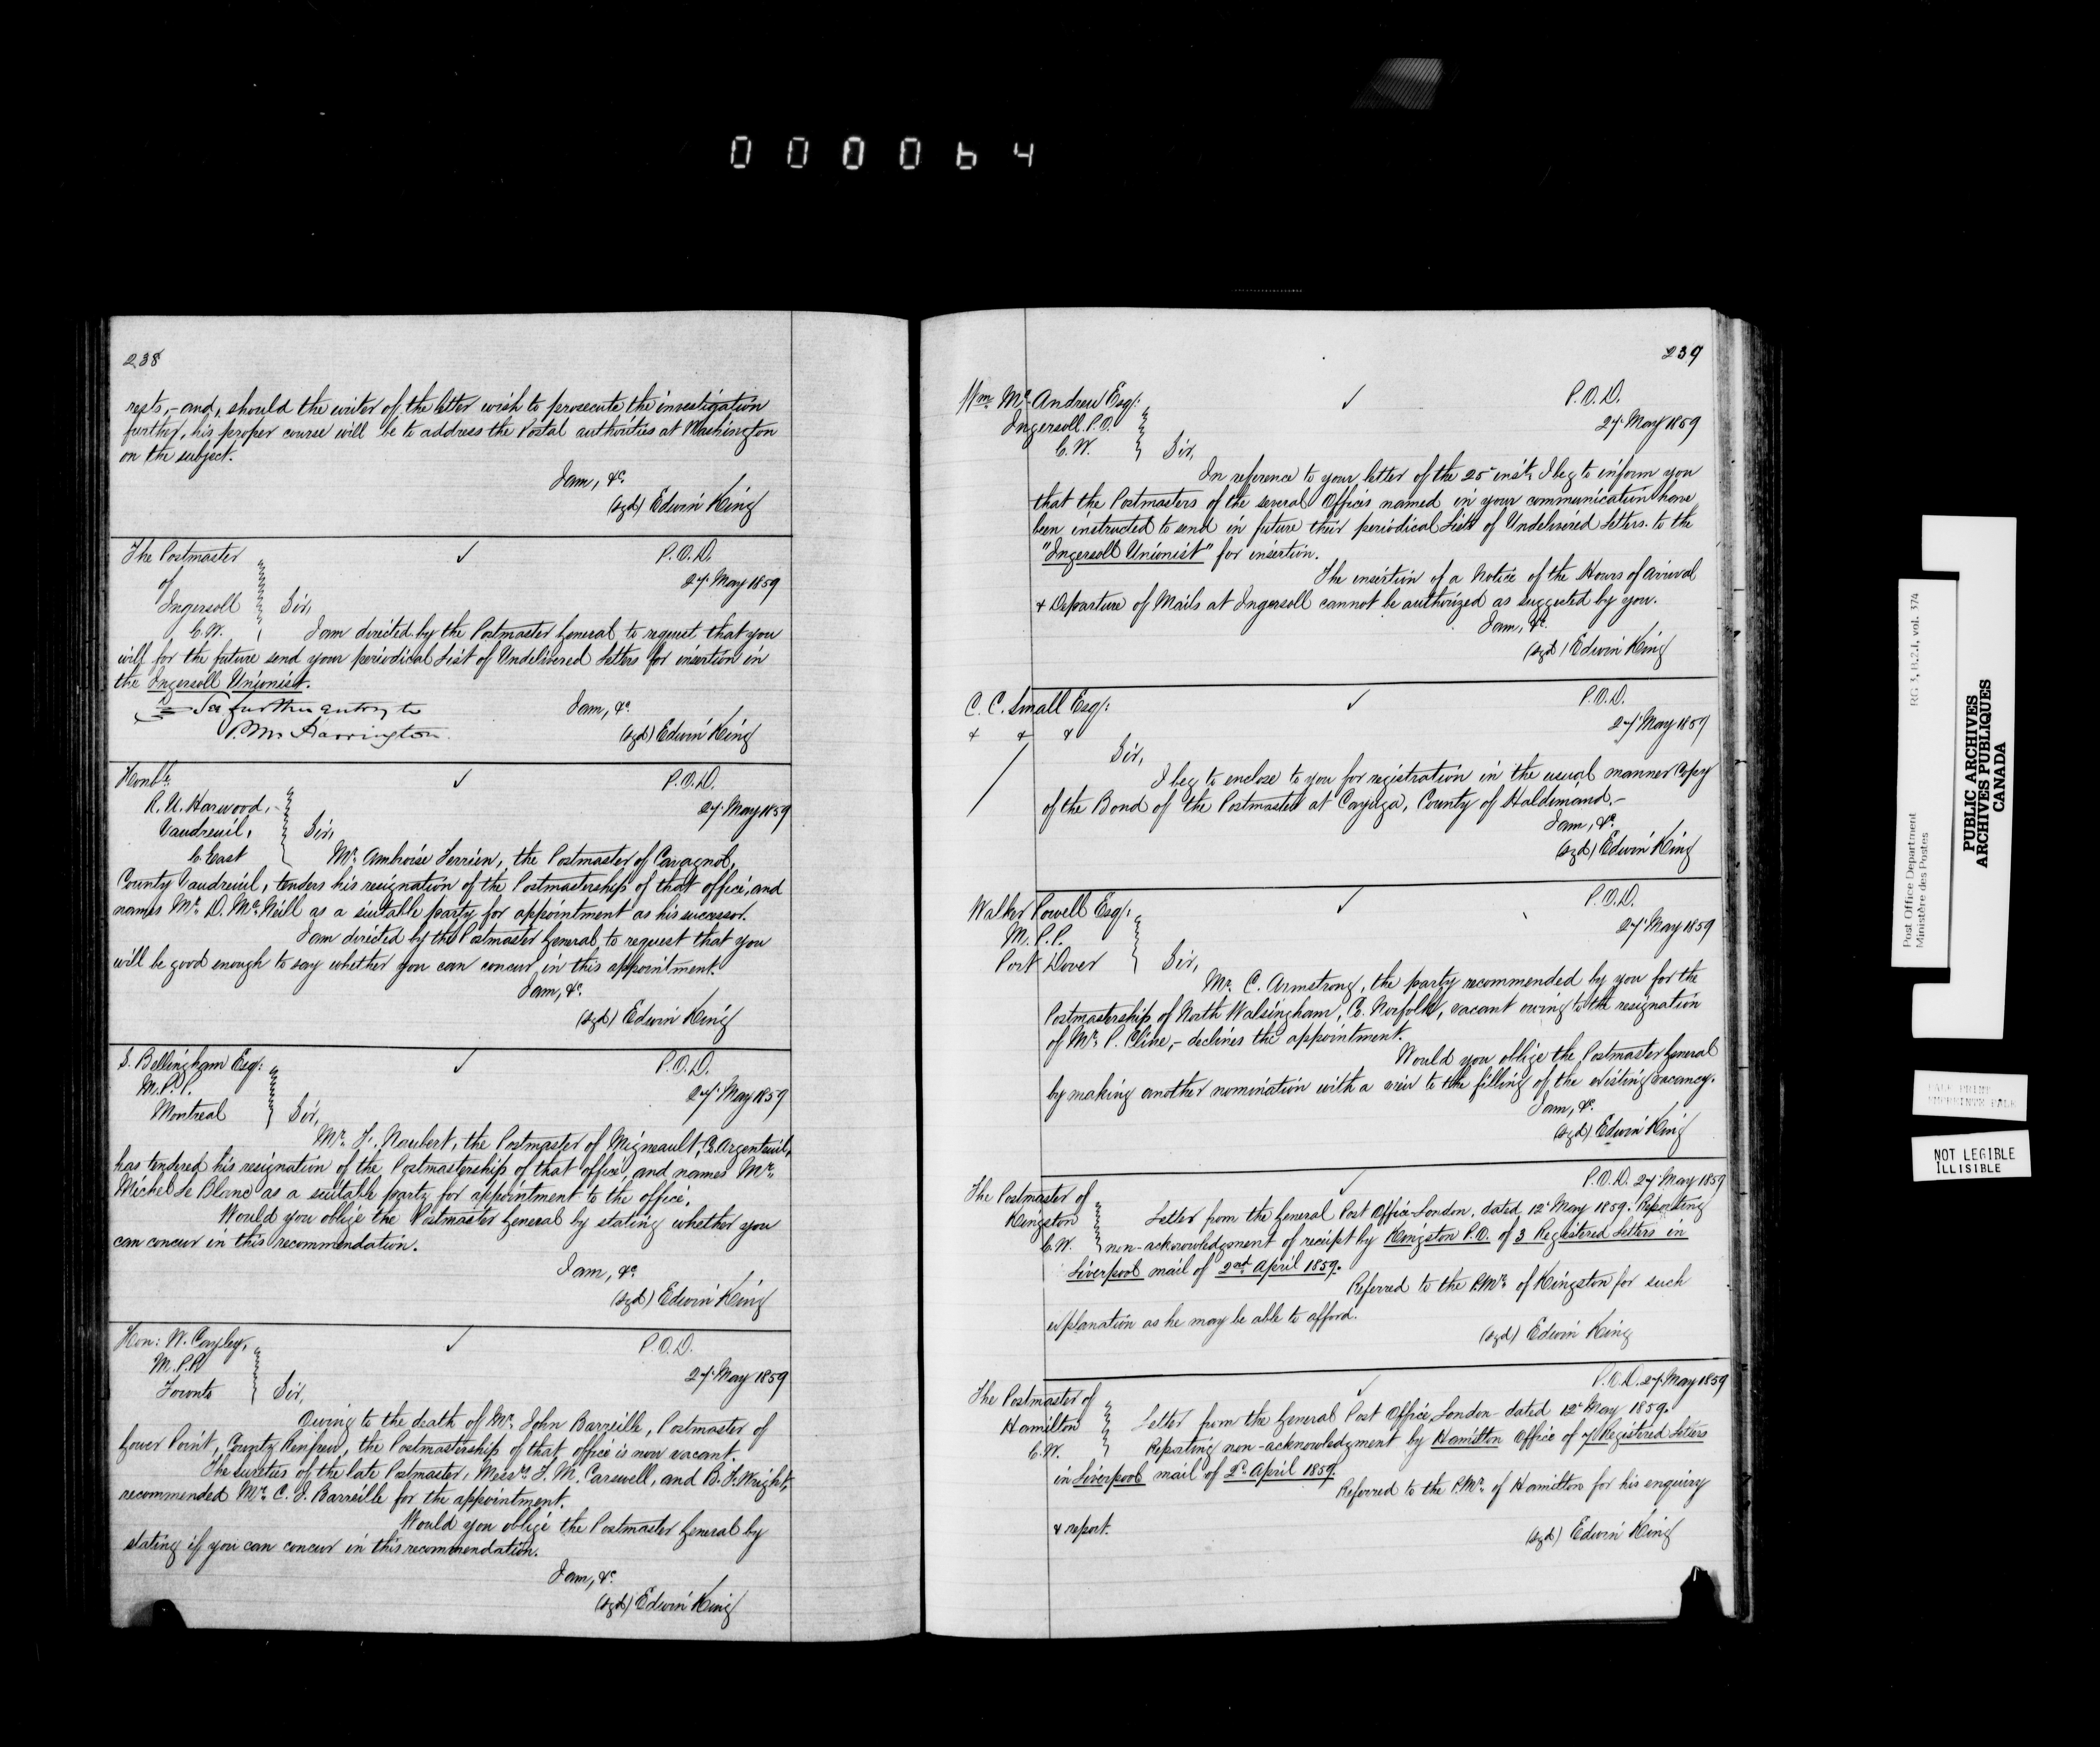 000064
238
rests,- and, should the writer of the letter wish to prosecute the investigation
further, his proper course will be to address the Postal authorities at Washington
on the subject.
I am, &c.
(sgd) Edwin King
The Postmaster
of
Ingersoll
C.W.
P.O.D.
27 May 1859
Sir,
I am directed by the Postmaster General to request that you
will for the future send your periodical List of Undelivered Letters for insertion in
the Ingersoll Unionist.
I am, &c.
(sgd) Edwin King
See further entry to
P.Mr Harrington
Honble
R. U. Harwood,
Vaudreuil,
C. East
P.O.D.
27 May 1859
Sir,
Mr. Ambroise Terrien, the Postmaster of Cavagnol,
County Vaudreuil, tenders his resignation of the Postmastership of that office, and
names Mr. D. McNeill as a suitable party for appointment as his successor.
I am directed by the Postmaster General to request that you
will be good enough to say whether you can concur in this appointment.
I am, &c.
(sgd) Edwin King
S. Bellingham Esq:
M.P.P.
Montreal
P.O.D.
27 May 1859
Sir,
Mr. F. Naubert, the Postmaster of Migneault, C. Argenteuil,
has tendered his resignation of the Postmastership of that office, and names Mr.
Michel Le Blanc as a suitable party for appointment to the office.
Would you oblige the Postmaster General by stating whether you
can concur in this recommendation.
I am, &c
(sgd) Edwin King
Hon: W. Cayley,
M.P.P.
Toronto
P.O.D.
27 May 1859
Sir,
Owing to the death of Mr. John Barreille, Postmaster of
Gower Point, County Renfrew, the Postmastership of that office is now vacant.
The sureties of the late Postmaster, Messrs. J. M. Carswell, and B. F. Wright,
recommended Mr. C. J. Barreille for the appointment.
Would you oblige the Postmaster General by
stating if you can concur in this recommendation.
I am, &c.
(sgd) Edwin King
239
Wm. McAndrew Esq:
Ingersoll. P.O.
C.W.
P.O.D.
27 May 1859
Sir,
In reference to your letter of the 25 inst. I beg to inform you
that the Postmasters of the several Offices named in your communication have
been instructed to send in future their periodical Lists of Undelivered Letters to the
"Ingersoll Unionist" for insertion.
The insertion of a Notice of the Hours of arrival
& Departure of Mails at Ingersoll cannot be authorized as suggested by you.
I am, &c.
(sgd) Edwin King
C. C. Small Esq:
& & &
P.O.D.
27 May 1859
Sir,
I beg to enclose to you for registration in the usual manner Copy
of the Bond of the Postmaster at Cayuga, County of Haldimand.-
I am, &c.
(sgd) Edwin King
Walker Powell Esq:
M.P.P.
Port Dover
P.O.D.
27 May 1859
Sir,
Mr. C. Armstrong, the party recommended by you for the
Postmastership of North Walsingham, C. Norfolk, vacant owing to the resignation
of Mr. P. Cline,- declines the appointment.
Would you oblige the Postmaster General
by making another nomination with a view to the filling of the existing vacancy.
I am, &c.
(sgd) Edwin King
P.O.D. 27 May 1859
The Postmaster of
Kingston
C.W.
Letter from the General Post Office London, dated 12 May 1859. Reporting
non-acknowledgment of receipt by Kingston P.O. of 3 Registered Letters in
Liverpool mail of 2nd April 1859.
Referred to the P.Mr. of Kingston for such
explanation as he may be able to afford.
(sgd) Edwin King
P.O.D. 27 May 1859
The Postmaster of
Hamilton
C.W.
Letter from the General Post Office, London dated 12 May 1859.
Reporting non-acknowledgment by Hamilton Office of 7 Registered Letters
in Liverpool mail of 2d. April 1859.
Referred to the P.Mr. of Hamilton for his enquiry
& report.
(sgd) Edwin King
Post Office Department
Ministère des Postes
RG 3, B.2.I, vol. 374
PUBLIC ARCHIVES
ARCHIVES PUBLIQUES
CANADA
NOT LEGIBLE
ILLISIBLE